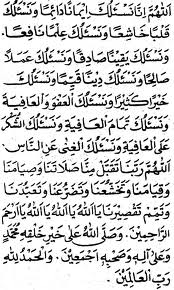 اَللّٰهُمَّ اِنَّا نَسْئَلُكَ اِيْمَانًا دَائِمًا وَنَسْئَلُكَ
قَلْبًا خَاشِعًا وَنَسْئَلُكَ عِلْمًا نَافِعًا.
وَنَسْئَلُكَ يَقِيْنًا صَادِقًا وَنَسْئَلُكَ عَمَلًا
صَالِحًا وَنَسْئَلُكَ دِيْنًا قَيِّمًا وَنَسْئَلُكَ
خَيْرًا كَثِيْرًا وَنَسْئَلُكَ الْعَفْوَ وَالْعَافِيَةَ
وَنَسْئَلُكَ تَمَامَ الْعَافِيَةِ وَنَسْئَلُكَ الشُّكْرَ
عَلَى الْعَافِيَةِ وَنَسْئَلُكَ الْغِنٰى عَنِ النَّاسِ
اَللّٰهُمَّ رَبَّنَا تَقَبَّلْ مِنَّا صَلَاتَنَا وَصِيَامَنَا
وَقِيَامَنَا وَتَخَشُّعَنَا وَتَضَرُّعَنَا وَتَعَبُّدَنَا
وَتَمِّمْ تَقْصِيْرَنَا يَا اَللّٰهُ يَا اَللّٰهُ يَا اَللّٰهُ يَا اَرْحَمَ
الرَّاحِمِيْنَ. وَصَلَّى اللّٰهُ عَلٰى خَيْرِ خَلْقِهِ مُحَمَّدٍ
وَعَلٰى اٰلِهِ وَصَحْبِهِ اَجْمَعِيْنَ. وَالْحَمْدُ لِلّٰهِ
رَبِّ الْعَالَمِيْنَ.